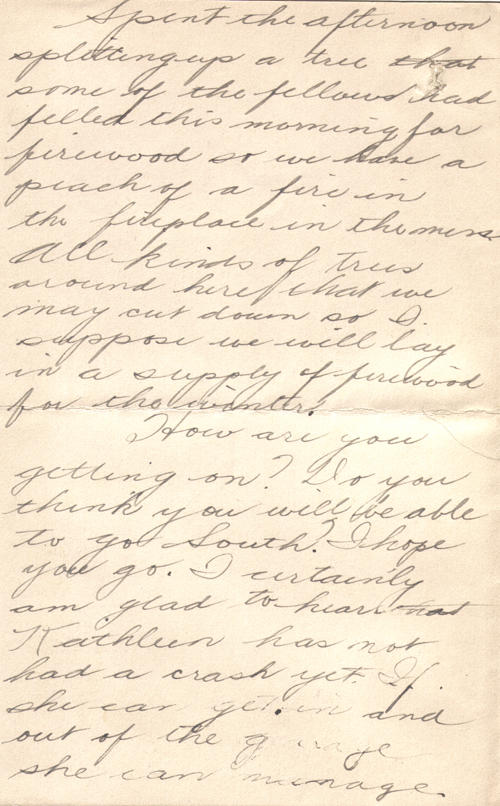 Spent the afternoon
splitting up a tree that
some of the fellows had
felled this morning for
firewood so we have a
peach of a fire in
the fireplace in the mess
All kinds of trees
around here that we
may cut down so I
suppose we will lay
in a supply of firewood
for the winter.
How are you
getting on? Do you
think you will be able
to go South? I hope
you go. I certainly
am glad to hear that
Kathleen has not
had a crash yet. If
she can get in and
out of the garage
she can manage.